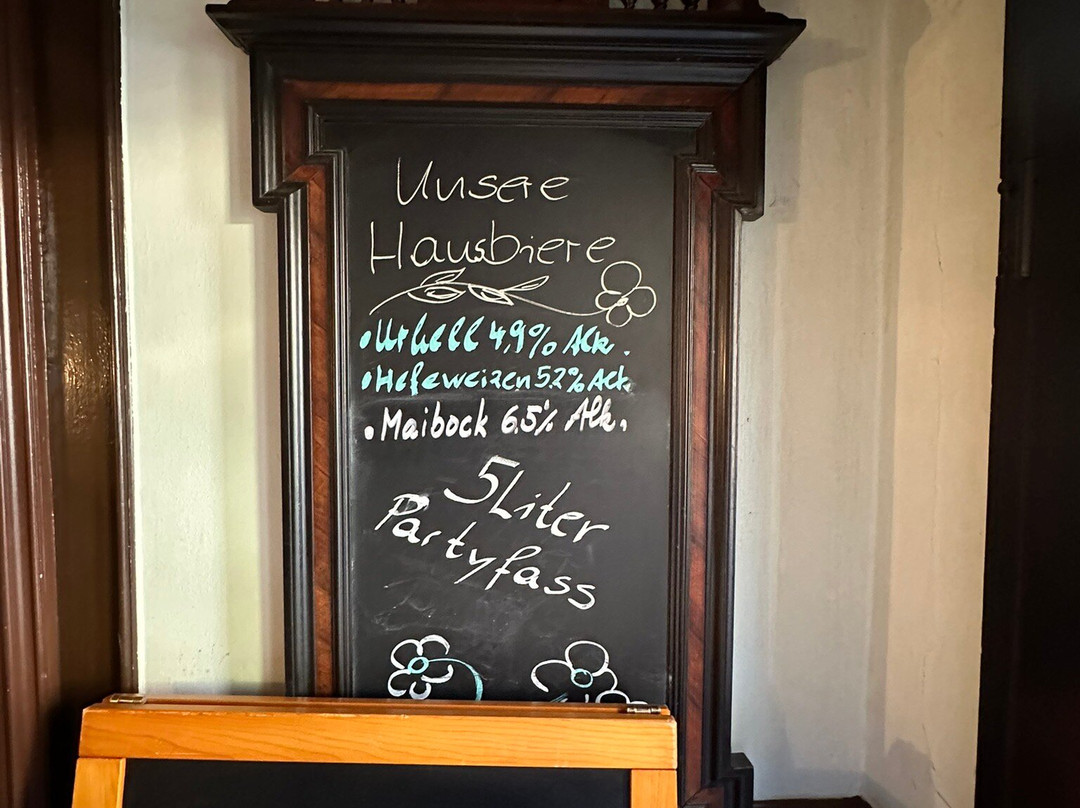 Unsere
Hausbiere
• Urhell 4,9% Alk.
• Hefeweizen 5.2% Alk.
• Maibock 6.5% Alk.
5 Liter
Partyfass